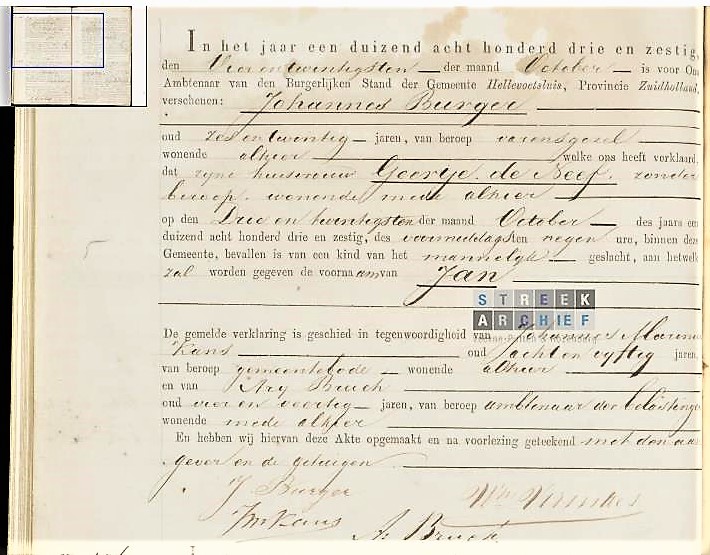 In het jaar een duizend acht honderd drie en zestig,
den Vier en twintigsten der maand October is voor Ons
Ambtenaar van den Burgerlijken Stand der Gemeente Hellevoetsluis, Provincie Zuidholland,
verschenen: Johannes Burger
oud zes en twintig jaren, van beroep varensgezel
wonende alhier welke ons heeft verklaard,
dat zyne huisvrouw Geertje de Neef, zonder
beroep, wonende mede alhier
op den Drie en twintigsten der maand October des jaars een
duizend acht honderd drie en zestig, des voormiddags ten negen ure, binnen deze
Gemeente, bevallen is van een kind van het mannelyk geslacht, aan hetwelk
zal worden gegeven de voornaam van Jan
STREEK
ARCHIEF
De gemelde verklaring is geschied in tegenwoordigheid van Johannes Marinus
Kans oud acht en vyftig jaren,
van beroep gemeentebode wonende alhier
en van Ary Bruch
oud vier en veertig jaren, van beroep ambtenaar der belasting
wonende mede alhier
En hebben wij hiervan deze Akte opgemaakt en na voorlezing geteekend met den aan
gever en de getuigen.
J Burger
JM Kans
A. Bruch